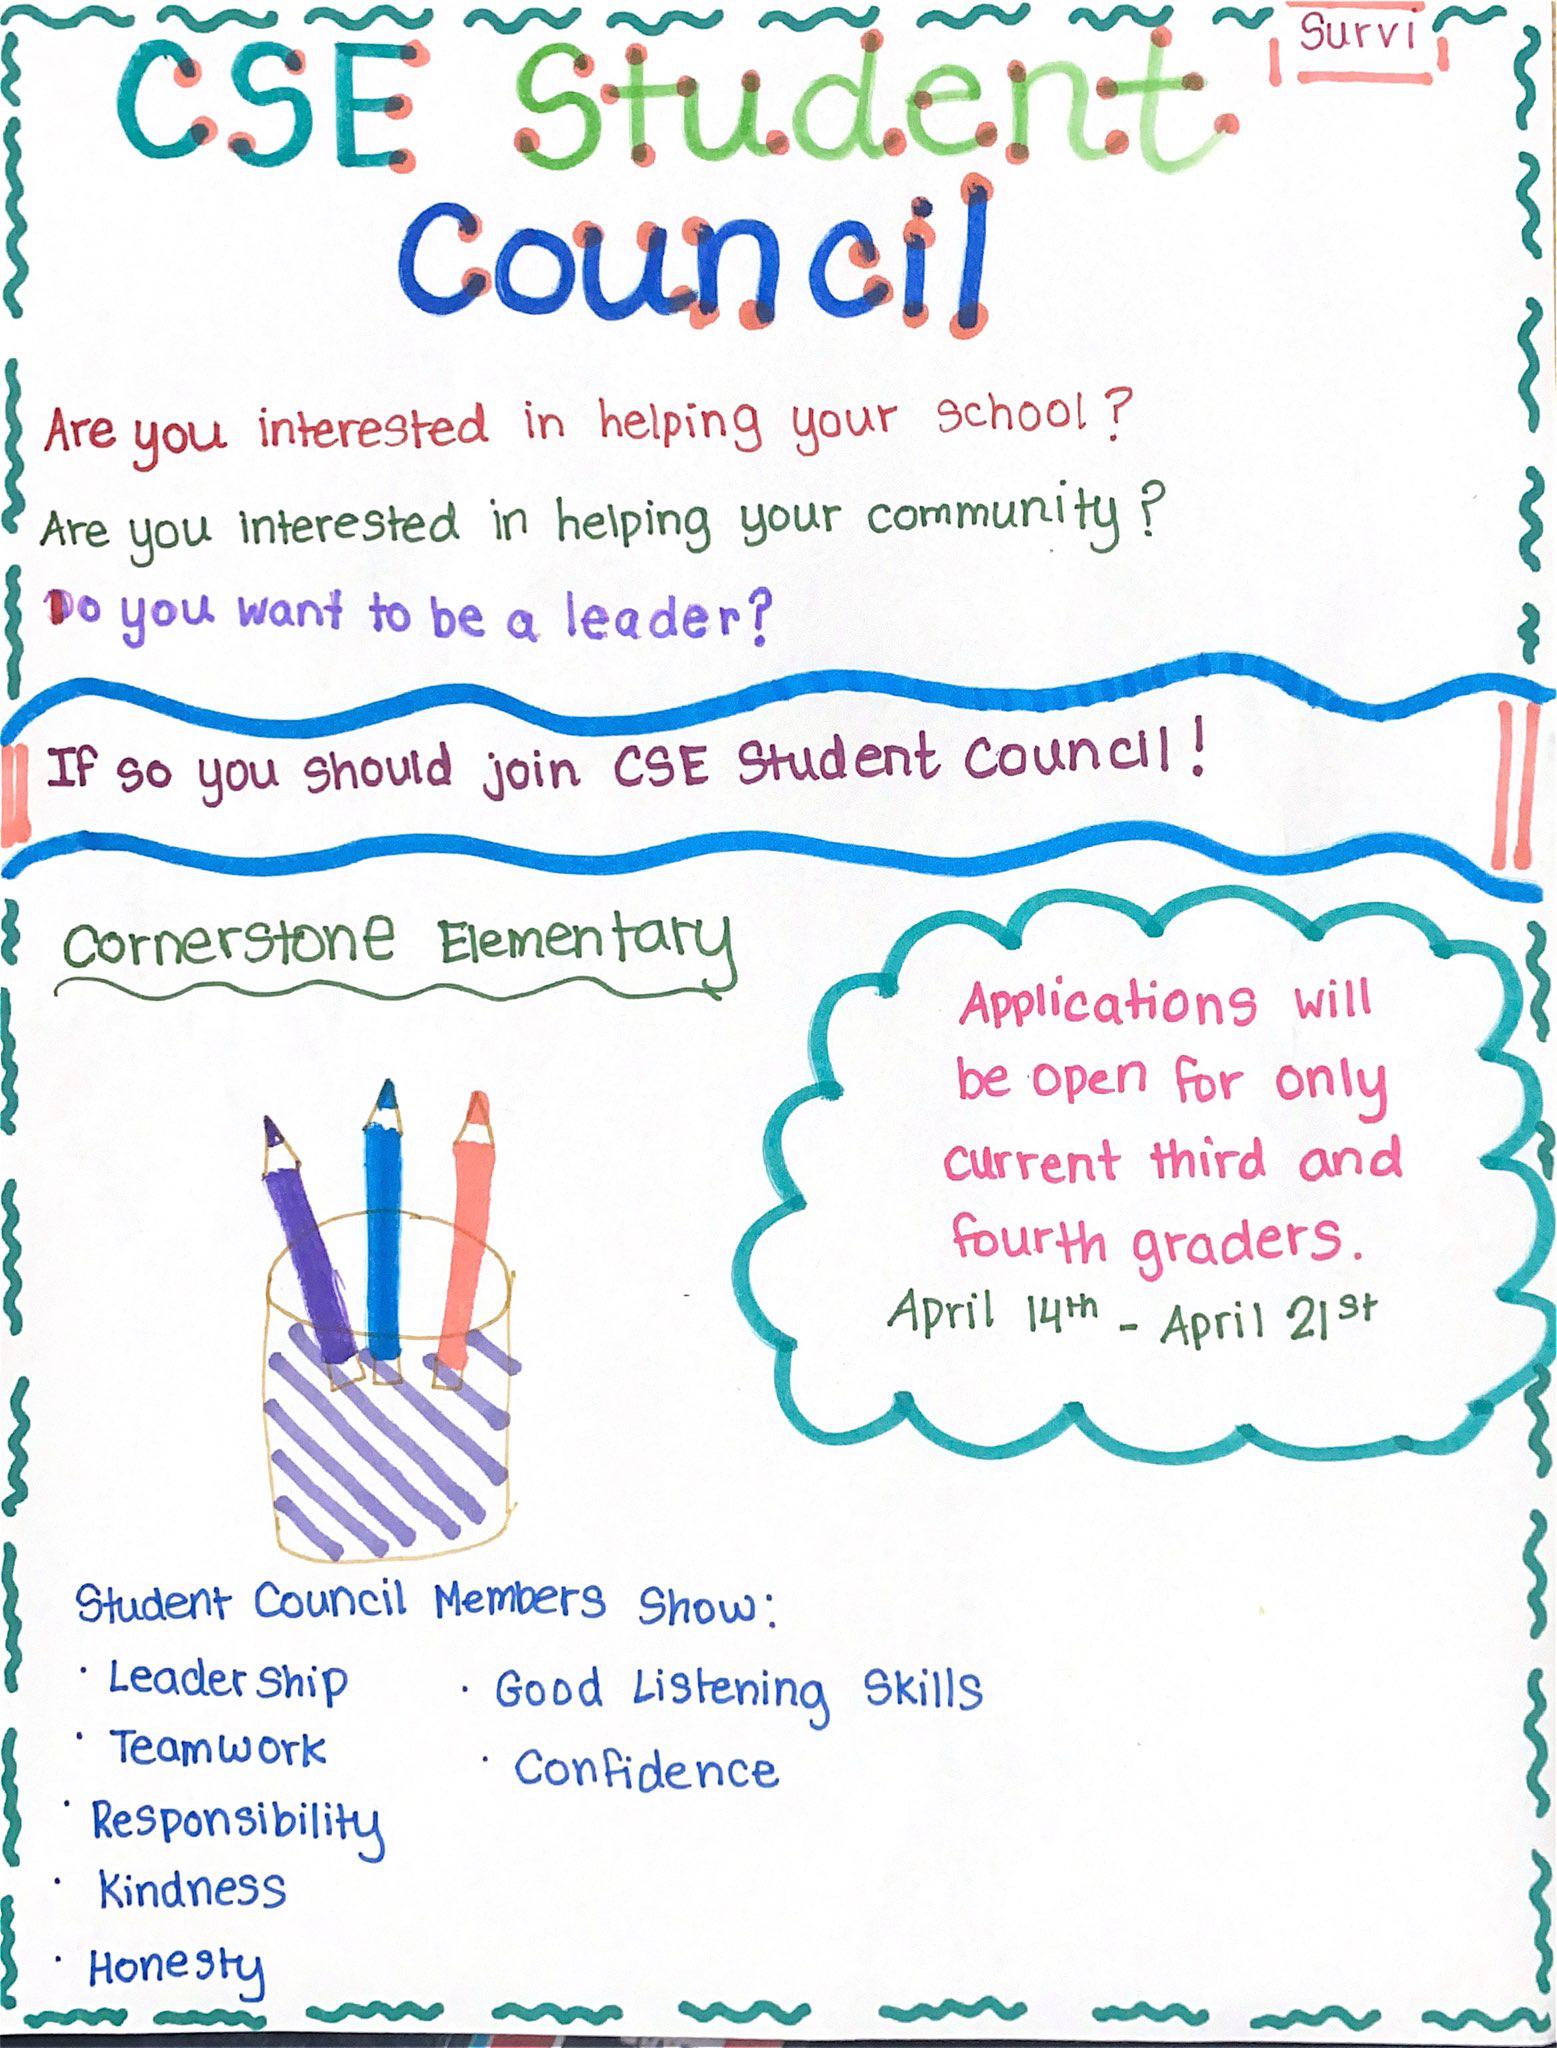 Survi
CSE Student
Council
Are you interested in helping your school?
Are you interested in helping your community?
Do you want to be a leader?
If so you should join CSE Student Council!
Cornerstone Elementary
Applications will
be open for only
current third and
fourth graders.
April 14th - April 21st
Student Council Members Show:
· Leadership
· Teamwork
· Responsibility
· Kindness
· Honesty
· Good Listening Skills
· Confidence